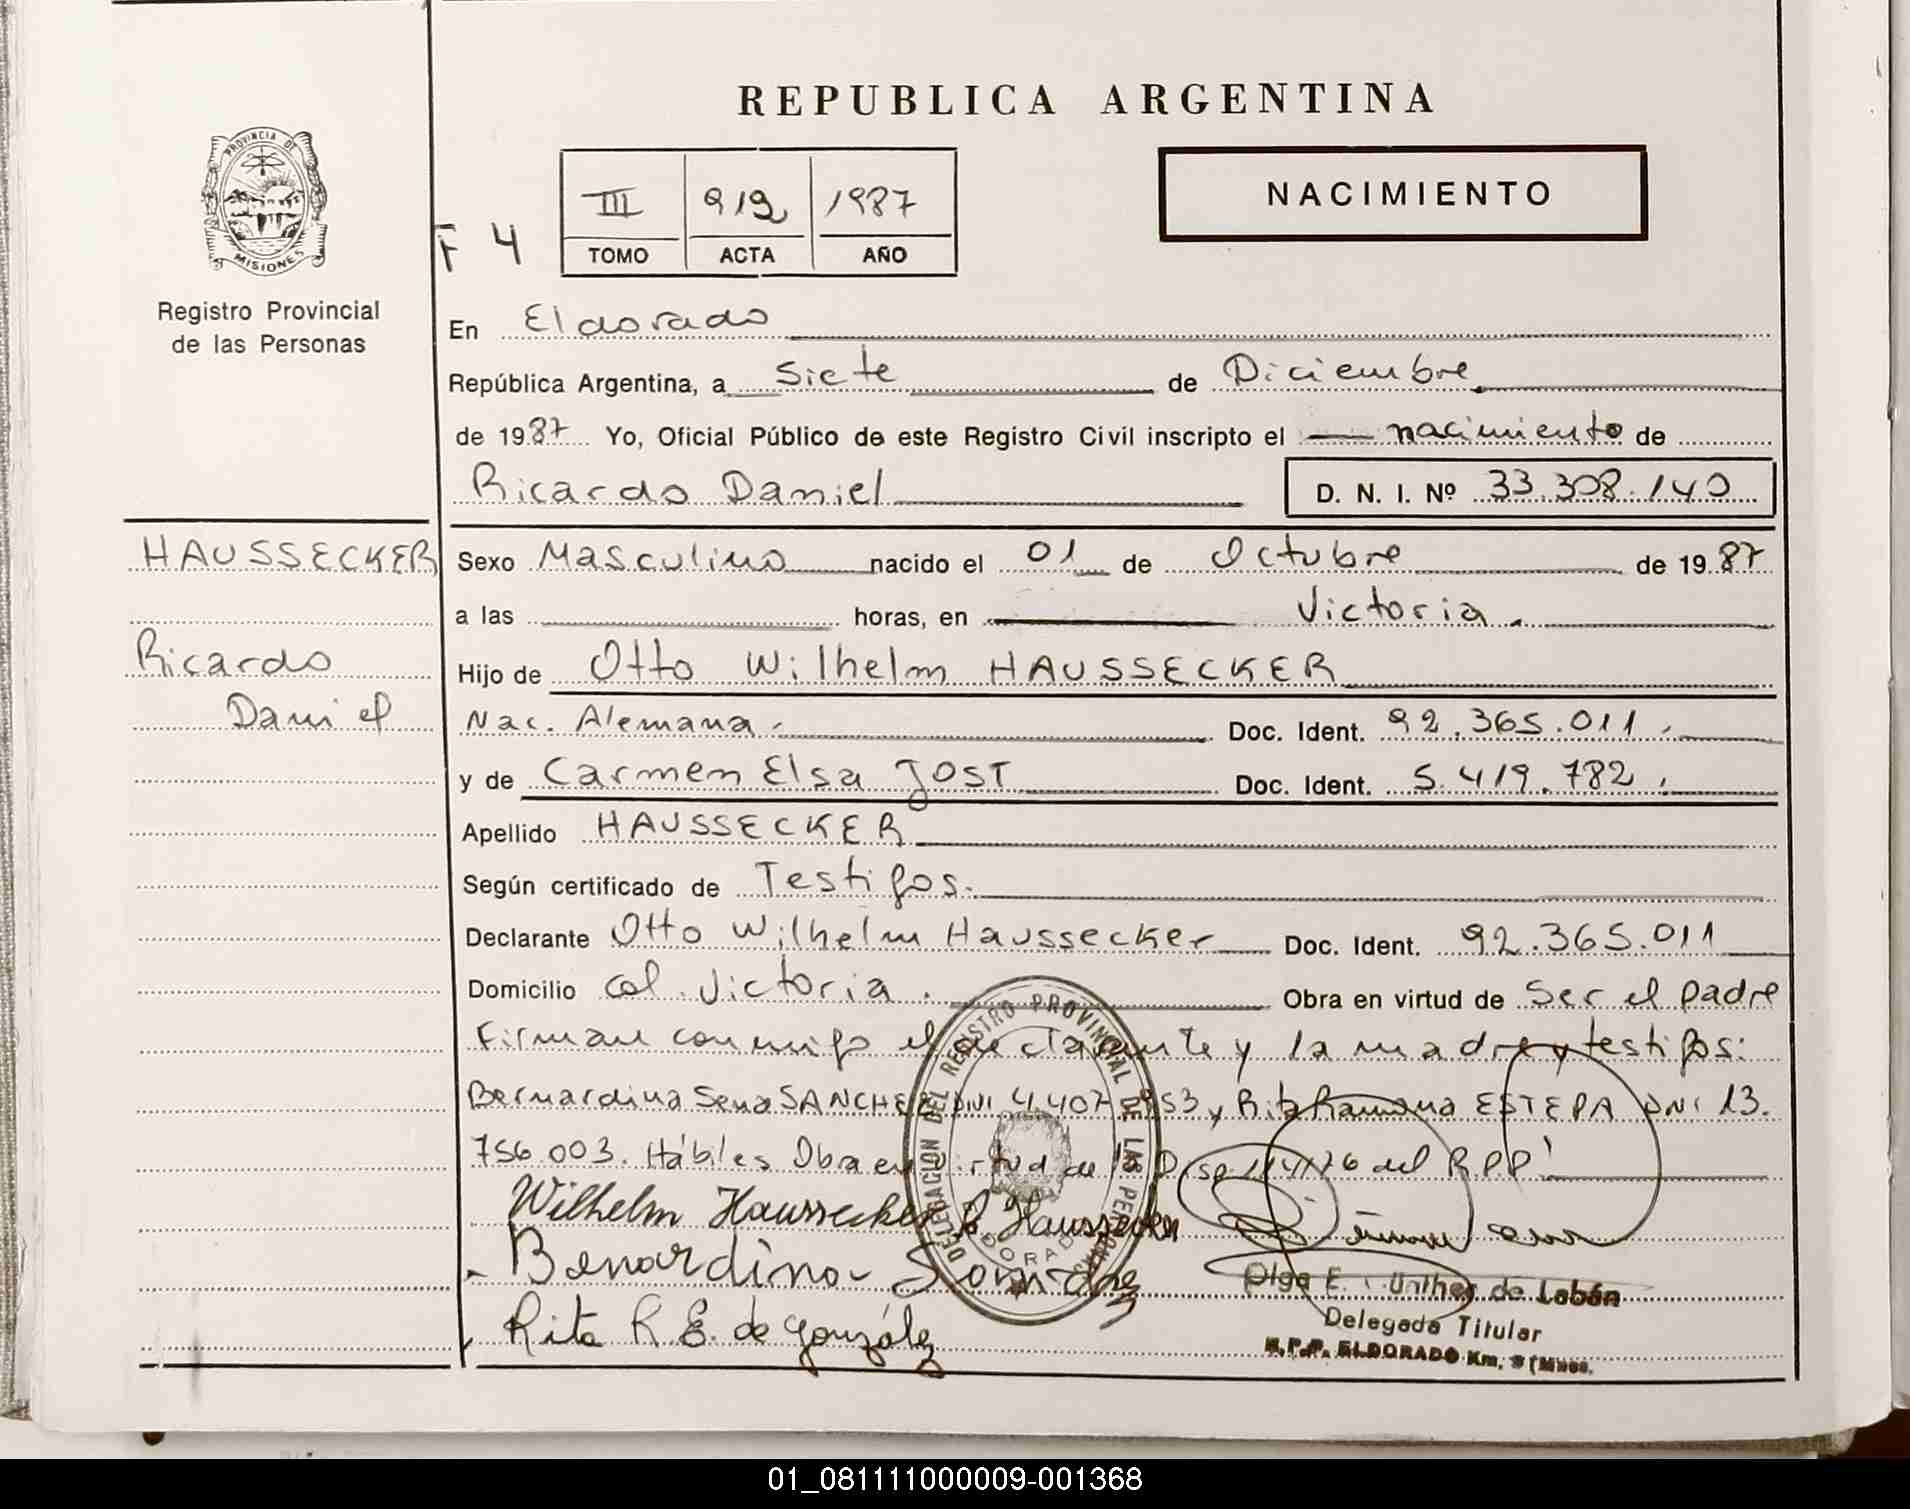 REPUBLICA ARGENTINA
PROVINCIA DE
MISIONES
Registro Provincial
de las Personas
F 4
III 912 1987
TOMO ACTA AÑO
NACIMIENTO
En Eldorado
República Argentina, a Siete de Diciembre
de 1987 Yo, Oficial Público de este Registro Civil inscripto el nacimiento de
Ricardo Daniel D. N. I. Nº 33.308.140
HAUSSECKER
Ricardo
Daniel
Sexo Masculino nacido el 01 de Octubre de 1987
a las horas, en Victoria.
Hijo de Otto Wilhelm HAUSSECKER
Nac. Alemana. Doc. Ident. 92.365.011.
y de Carmen Elsa JOST Doc. Ident. 5.419.782.
Apellido HAUSSECKER
Según certificado de Testigos.
Declarante Otto Wilhelm Haussecker Doc. Ident. 92.365.011
Domicilio Col. Victoria. Obra en virtud de Ser el padre
Firman conmigo el declarante y la madre y testigos:
Bernardina Sena SANCHEZ DNI 4.407.953 y Rita Ramona ESTEPA DNI 13.
756.003. Hábiles Obra en virtud de la Disp 114/76 del R.P.P.
Wilhelm Haussecker Haussecker
Benardina
Rita R E. de González
DELEGACION DEL REGISTRO PROVINCIAL DE LAS PERSONAS
ELDORADO
Olga E. de Labán
Delegada Titular
R.P.P. ELDORADO Km. 9 (Mnes.
01_081111000009-001368